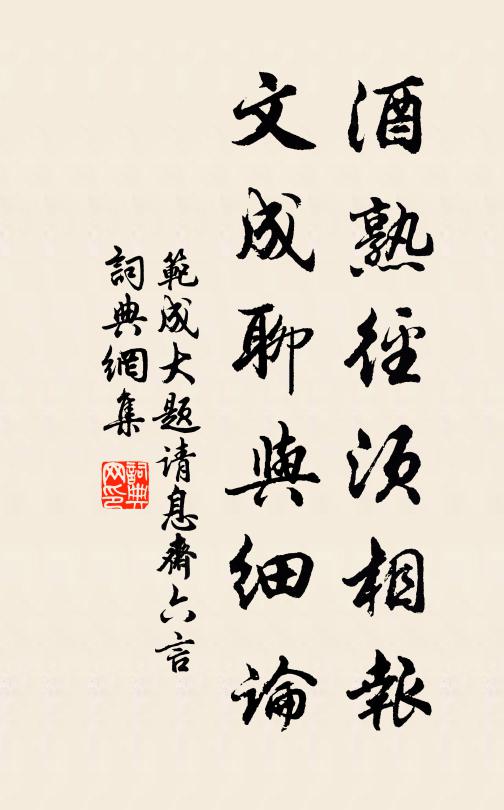 酒熟径须相報
文成聊與细論
範成大题请息齋六言
詞典網集
詞典网印